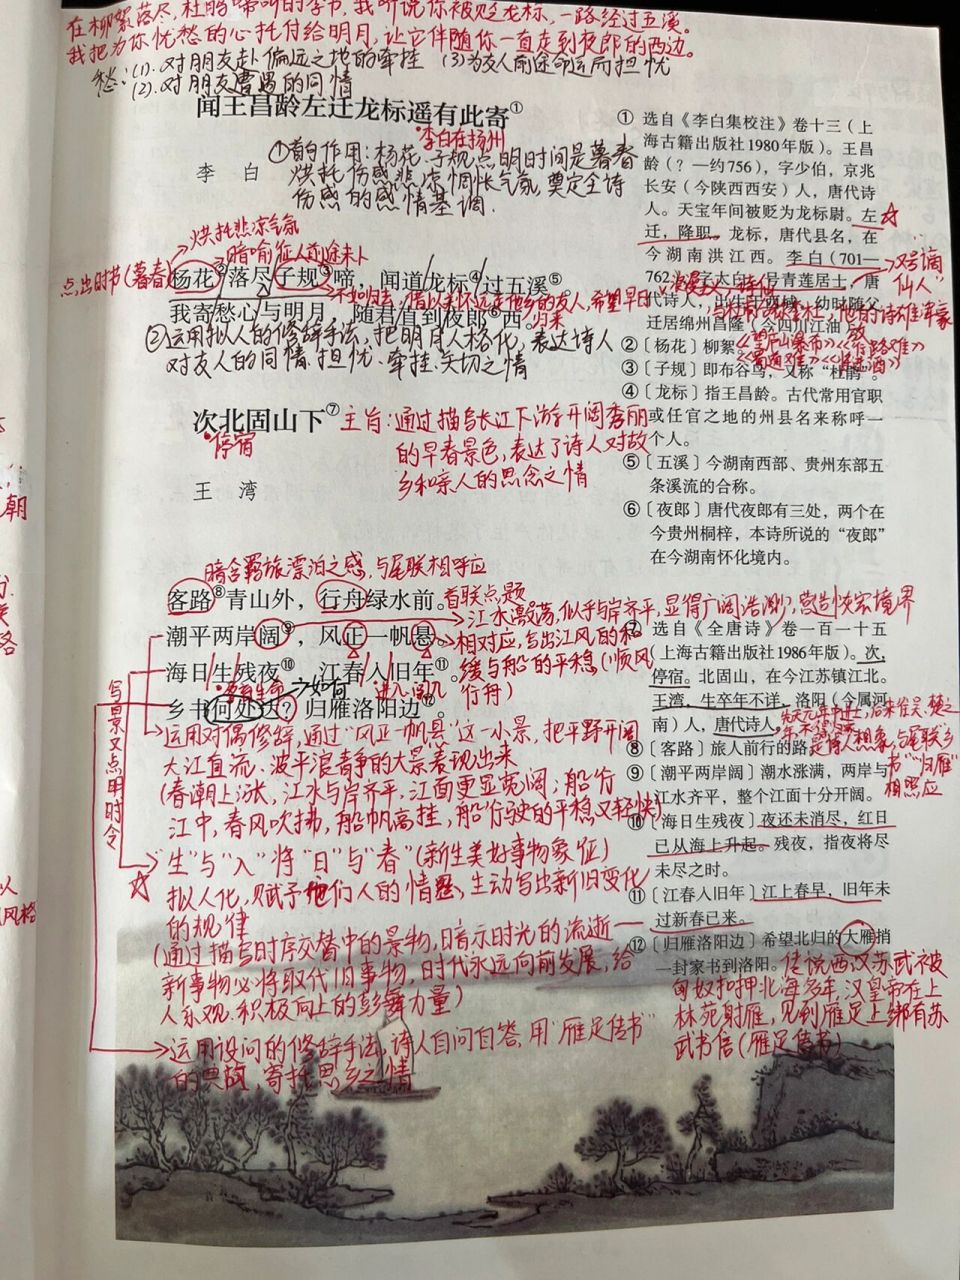 在柳絮落尽,杜鹃啼叫的季节,我听说你被贬龙标,一路经过五溪。
我把为你忧愁的心托付给明月,让它伴随你一直走到夜郎的西边。
愁:(1).对朋友赴偏远之地的牵挂 (3)为友人前途命运而担忧
(2).对朋友遭遇的同情
闻王昌龄左迁龙标遥有此寄①
李白在扬州
李 白
①首句作用:杨花、子规点明时间是暮春
烘托伤感悲凉惆怅气氛,奠定全诗
伤感的感情基调.
烘托悲凉气氛
暗喻征人前途未卜
点出时节(暮春)
杨花②落尽子规③啼,闻道龙标④过五溪⑤。
不如归去,借以关怀远走他乡的友人,希望早日
归来
我寄愁心与明月,随君直到夜郎⑥西。
②运用拟人的修辞手法,把明月人格化,表达诗人
对友人的同情.担忧.牵挂.关切之情
次北固山下⑦
停宿
主旨:通过描写长江下游开阔秀丽
的早春景色,表达了诗人对故
乡和亲人的思念之情
王 湾
暗含羁旅漂泊之感,与尾联相呼应
客路⑧青山外,行舟绿水前。
首联点题
江水漫荡,似乎与岸齐平,显得广阔浩渺,营造恢宏境界
潮平两岸阔⑨,风正一帆悬。
相对应,写出江风的和
缓与船的平稳(顺风
行舟)
海日生残夜⑩,江春入旧年⑪。
如何
进入.闯入
乡书何处达?归雁洛阳边⑫。
写景又点明时令
运用对偶修辞,通过“风正一帆悬”这一小景,把平野开阔
大江直流、波平浪静的大景表现出来
(春潮上涨,江水与岸齐平,江面更显宽阔;船行
江中,春风吹拂,船帆高挂,船行驶的平稳又轻快)
“生”与“入”将“日”与“春”(新生美好事物象征)
拟人化,赋予他们人的情思,生动写出新旧变化
的规律
(通过描写时序交替中的景物,暗示时光的流逝
新事物必将取代旧事物,时代永远向前发展,给
人乐观.积极向上的鼓舞力量)
运用设问的修辞手法,诗人自问自答,用“雁足传书”
的典故,寄托思乡之情
① 选自《李白集校注》卷十三(上
海古籍出版社1980年版)。王昌
龄(?—约756),字少伯,京兆
长安(今陕西西安)人,唐代诗
人。天宝年间被贬为龙标尉。左
迁,降职。龙标,唐代县名,在
今湖南洪江西。李白(701—
762),字太白,号青莲居士,唐
代诗人,出生于碎叶,幼时随父
迁居绵州昌隆(今四川江油)。
又号“谪
仙人”
《望庐山瀑布》《行路难》
《蜀道难》《将进酒》
② 〔杨花〕柳絮。
③ 〔子规〕即布谷鸟,又称“杜鹃”。
④ 〔龙标〕指王昌龄。古代常用官职
或任官之地的州县名来称呼一
个人。
⑤ 〔五溪〕今湖南西部、贵州东部五
条溪流的合称。
⑥ 〔夜郎〕唐代夜郎有三处,两个在
今贵州桐梓,本诗所说的“夜郎”
在今湖南怀化境内。
⑦ 选自《全唐诗》卷一百一十五
(上海古籍出版社1986年版)。次,
停宿。北固山,在今江苏镇江北。
王湾,生卒年不详,洛阳(今属河
南)人,唐代诗人。
⑧ 〔客路〕旅人前行的路。
是诗人想象,与尾联“乡
书”“归雁”
相照应
⑨ 〔潮平两岸阔〕潮水涨满,两岸与
江水齐平,整个江面十分开阔。
⑩ 〔海日生残夜〕夜还未消尽,红日
已从海上升起。残夜,指夜将尽
未尽之时。
⑪ 〔江春入旧年〕江上春早,旧年未
过新春已来。
⑫ 〔归雁洛阳边〕希望北归的大雁捎
一封家书到洛阳。
传说西汉苏武被
匈奴扣押北海多年,汉皇帝在上
林苑射雁,见到雁足上绑有苏
武书信(雁足传书)